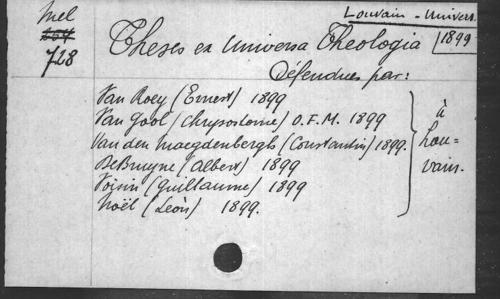 Mel
728
Louvain - Univers.
1899
Theses ex Universa Theologia
Défendues par:
Van Roey (Ernest) 1899
Van Gool (Chrysostome) O.F.M. 1899
Van den Maegdenbergh (Constantin) 1899.
De Bruyne (Albert) 1899
Voisin (Guillaume) 1899
Noël (Léon) 1899.
à
Lou-
vain.